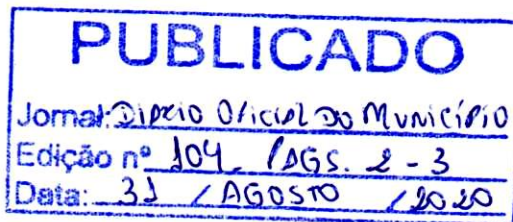 PUBLICADO
Jornal: Diário Oficial do Município
Edição nº 104 PÁGS. 2-3
Data: 31 / AGOSTO / 2020